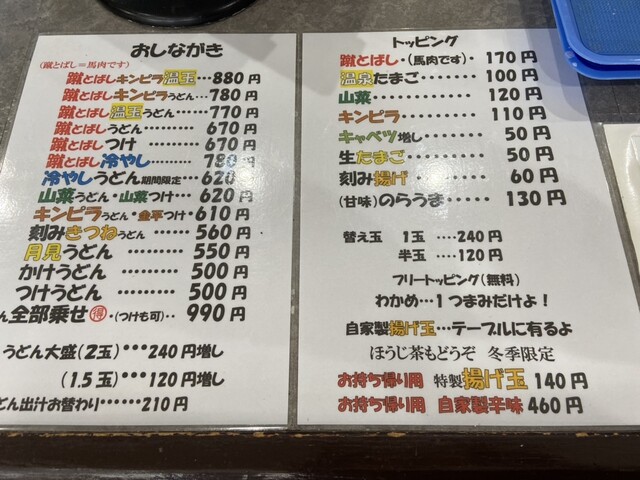 おしながき
(蹴とばし=馬肉です)
蹴とばしキンピラ温玉・・・880円
蹴とばしキンピラうどん・・・780円
蹴とばし温玉うどん・・・・・770円
蹴とばしうどん・・・・・・・670円
蹴とばしつけ・・・・・・・・670円
蹴とばし冷やし・・・・・・・780円
冷やしうどん期間限定・・・620
山菜うどん・山菜つけ・・・620円
キンピラうどん・金平つけ・610円
刻みきつねうどん・・・・・・560円
月見うどん・・・・・・・・・550円
かけうどん・・・・・・・・・500円
つけうどん・・・・・・・・・500円
ん全部乗せ㊝・(つけも可)・・990円
うどん大盛(2玉)・・・240円増し
(1.5玉)・・・120円増し
どん出汁お替わり・・・・・・210円
トッピング
蹴とばし・(馬肉です)・170円
温泉たまご・・・・・・・・100円
山菜・・・・・・・・・・・120円
キンピラ・・・・・・・・・110円
キャベツ増し・・・・・・・50円
生たまご・・・・・・・・・50円
刻み揚げ・・・・・・・・・60円
(甘味)のらうま・・・・・130円
替え玉 1玉 ‥‥240円
半玉 ‥‥120円
フリートッピング(無料)
わかめ・・・1つまみだけよ!
自家製揚げ玉・・・テーブルに有るよ
ほうじ茶もどうぞ 冬季限定
お持ち帰り用 特製揚げ玉 140円
お持ち帰り用 自家製辛味 460円